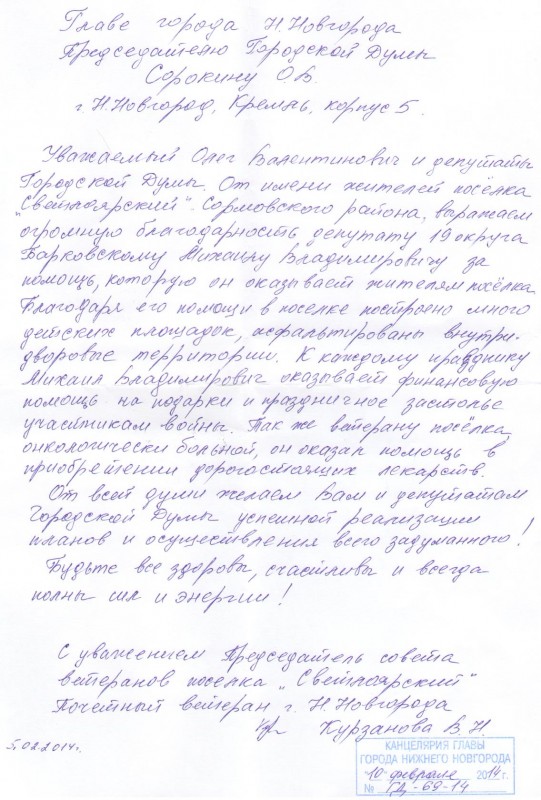 Главе города Н.Новгорода
Председателю Городской Думы
Сорокину О.В.
г.Н.Новгород, Кремль, корпус 5.
Уважаемый Олег Валентинович и депутаты
Городской Думы. От имени жителей посёлка
"Светлоярский". Сормовского района, выражаем
огромную благодарность депутату 19 округа
Барковскому Михаилу Владимировичу за
помощь, которую он оказывает жителям посёлка
Благодаря его помощи в поселке построено много
детских площадок, асфальтированы внутри-
дворовые территории. К каждому празднику
Михаил Владимирович оказывает финансовую
помощь на подарки и праздничное застолье
участникам войны. Так же ветерану посёлка,
онкологически больной, он оказал помощь в
приобретении дорогостоящих лекарств.
От всей души желаем Вам и депутатам
Городской Думы успешной реализации
планов и осуществления всего задуманного!
Будьте все здоровы, счастливы и всегда
полны сил и энергии!
С уважением Председатель совета
ветеранов поселка „Светлоярский"
Почетный ветеран г. Н.Новгорода
Курзанова В.Н.
5.02.2014г.
КАНЦЕЛЯРИЯ ГЛАВЫ
ГОРОДА НИЖНЕГО НОВГОРОДА
10 февраля 2014 г.
№ ГД-69-14